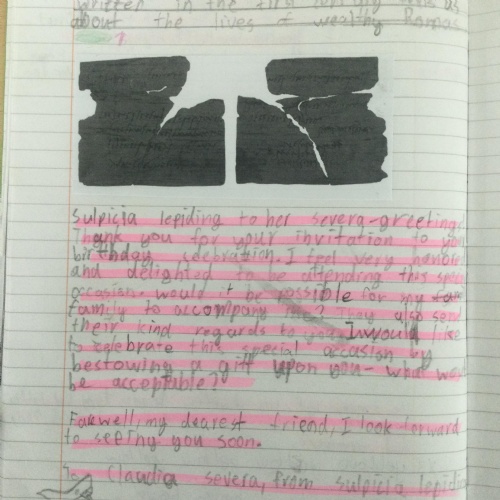 written in the first
about the lives of wealthy Romans
Sulpicia lepiding to her severa-greetings
Thank you for your invitation to your
birthday celebration. I feel very honore
and delighted to be attending this spec
occasion. would it be possible for my
family to accompany me? They also send
their kind regards to you. I would like
to celebrate this special occasion by
bestowing a gift upon you- what wou
be acceptable?
Farewell, my dearest friend, I look forward
to seeing you soon.
To Claudia severa, from sulpicia lepidin